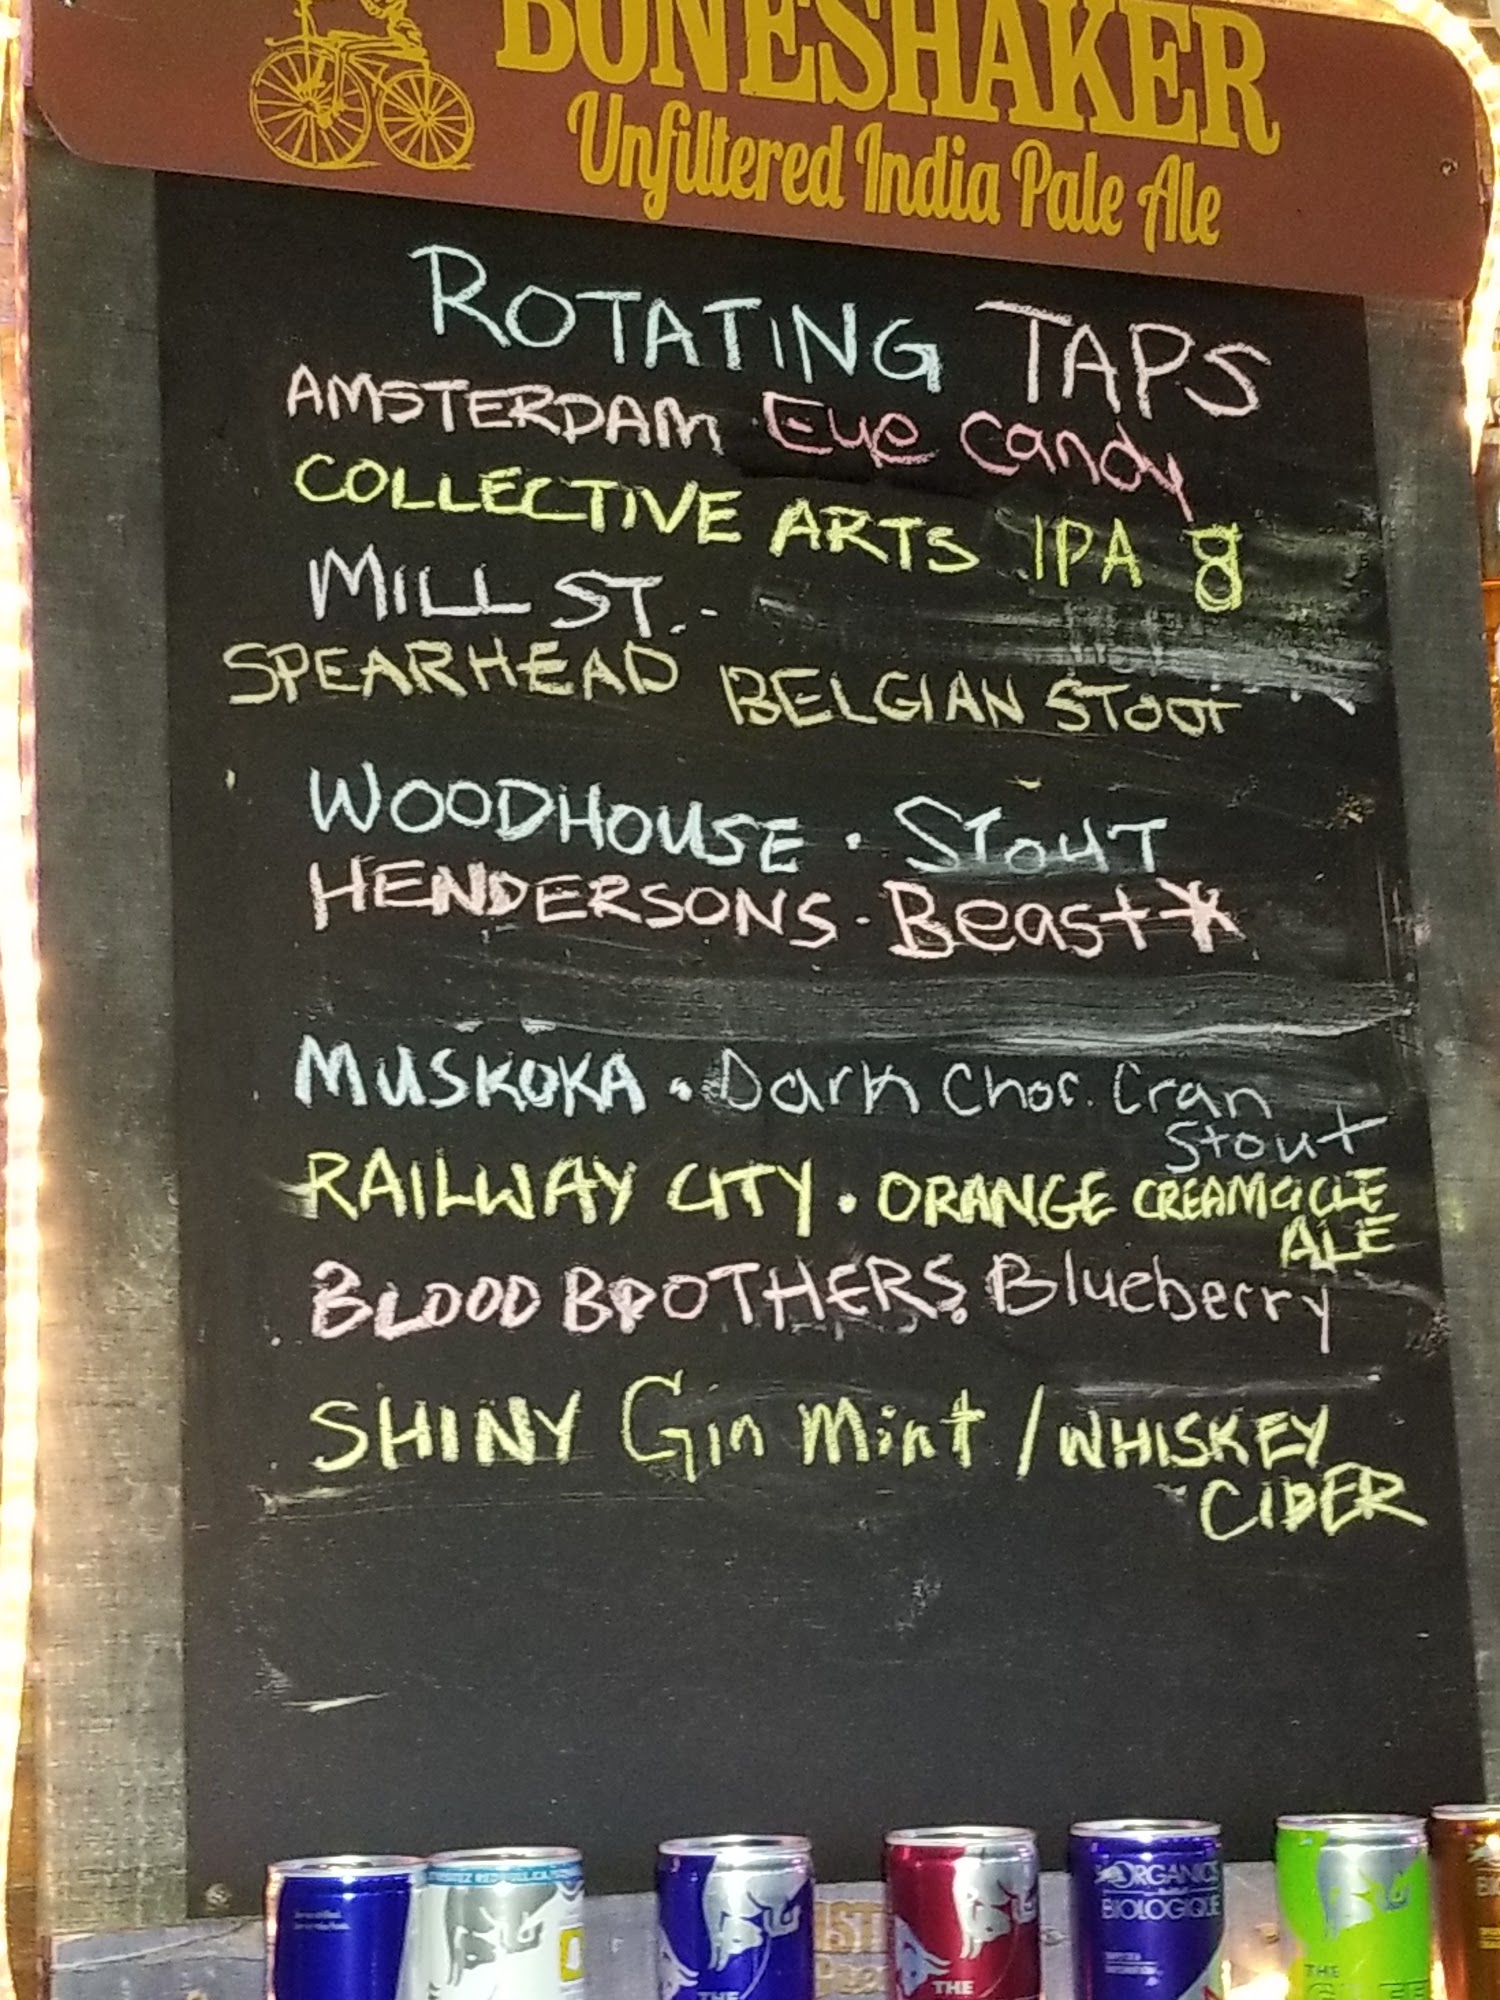 BONESHAKER
Unfiltered India Pale Ale
ROTATING TAPS
AMSTERDAM Eye Candy
COLLECTIVE ARTS IPA 8
MILL ST. -
SPEARHEAD BELGIAN STOUT
WOODHOUSE · STOUT
HENDERSONS - Beast*
MUSKOKA · Dark Choc. Cran
Stout
RAILWAY CITY · ORANGE CREAMCICLE
ALE
BLOOD BROTHERS. Blueberry
SHINY Gin Mint / WHISKEY
CIDER
ORGANICS
BIOLOGIQUE
THE
THE
THE